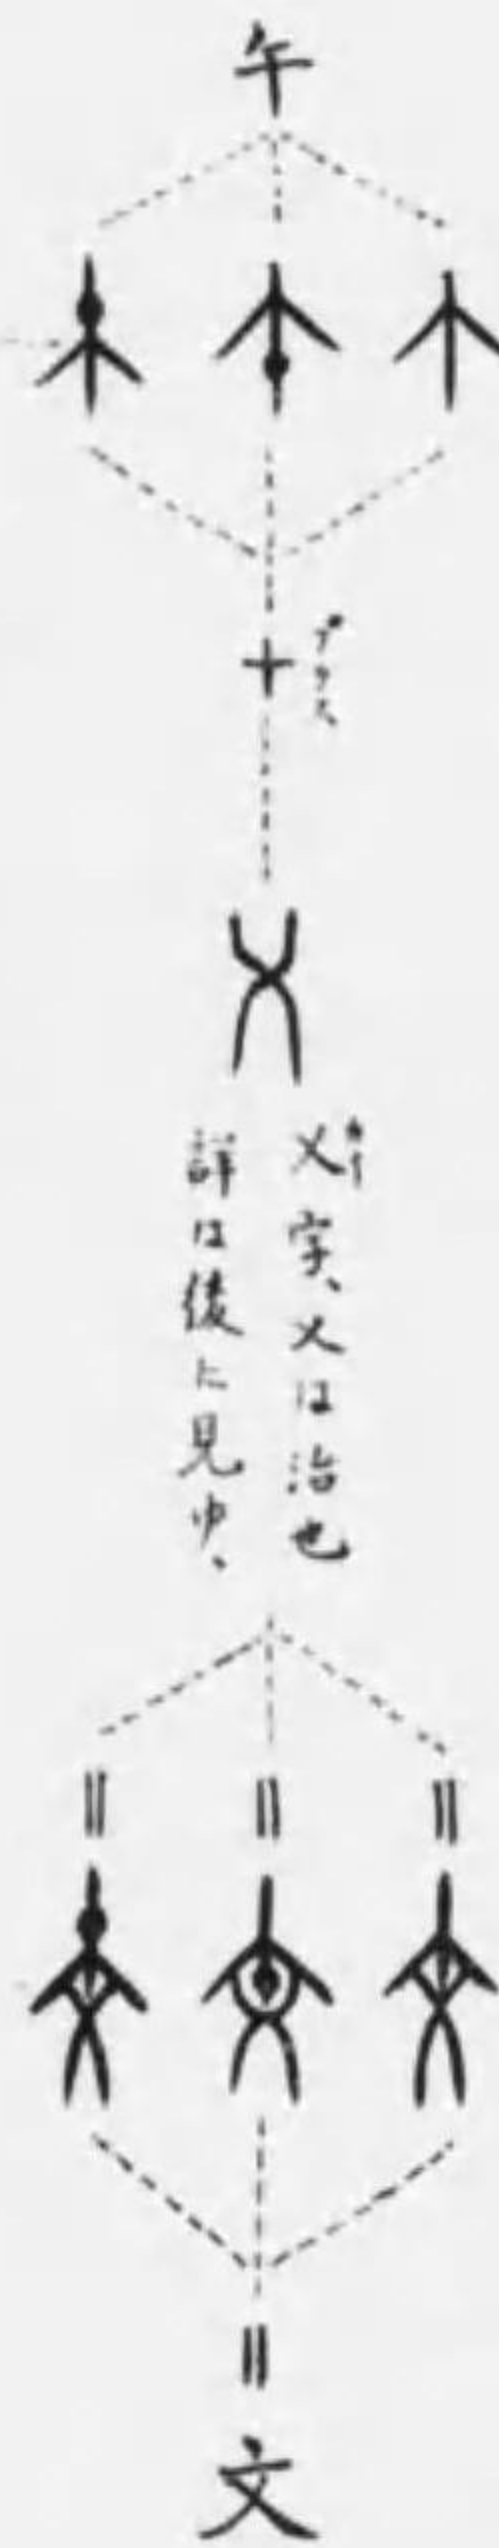 午
+
プラス
乂字、乂は治也
詳は後に見ゆ、
文